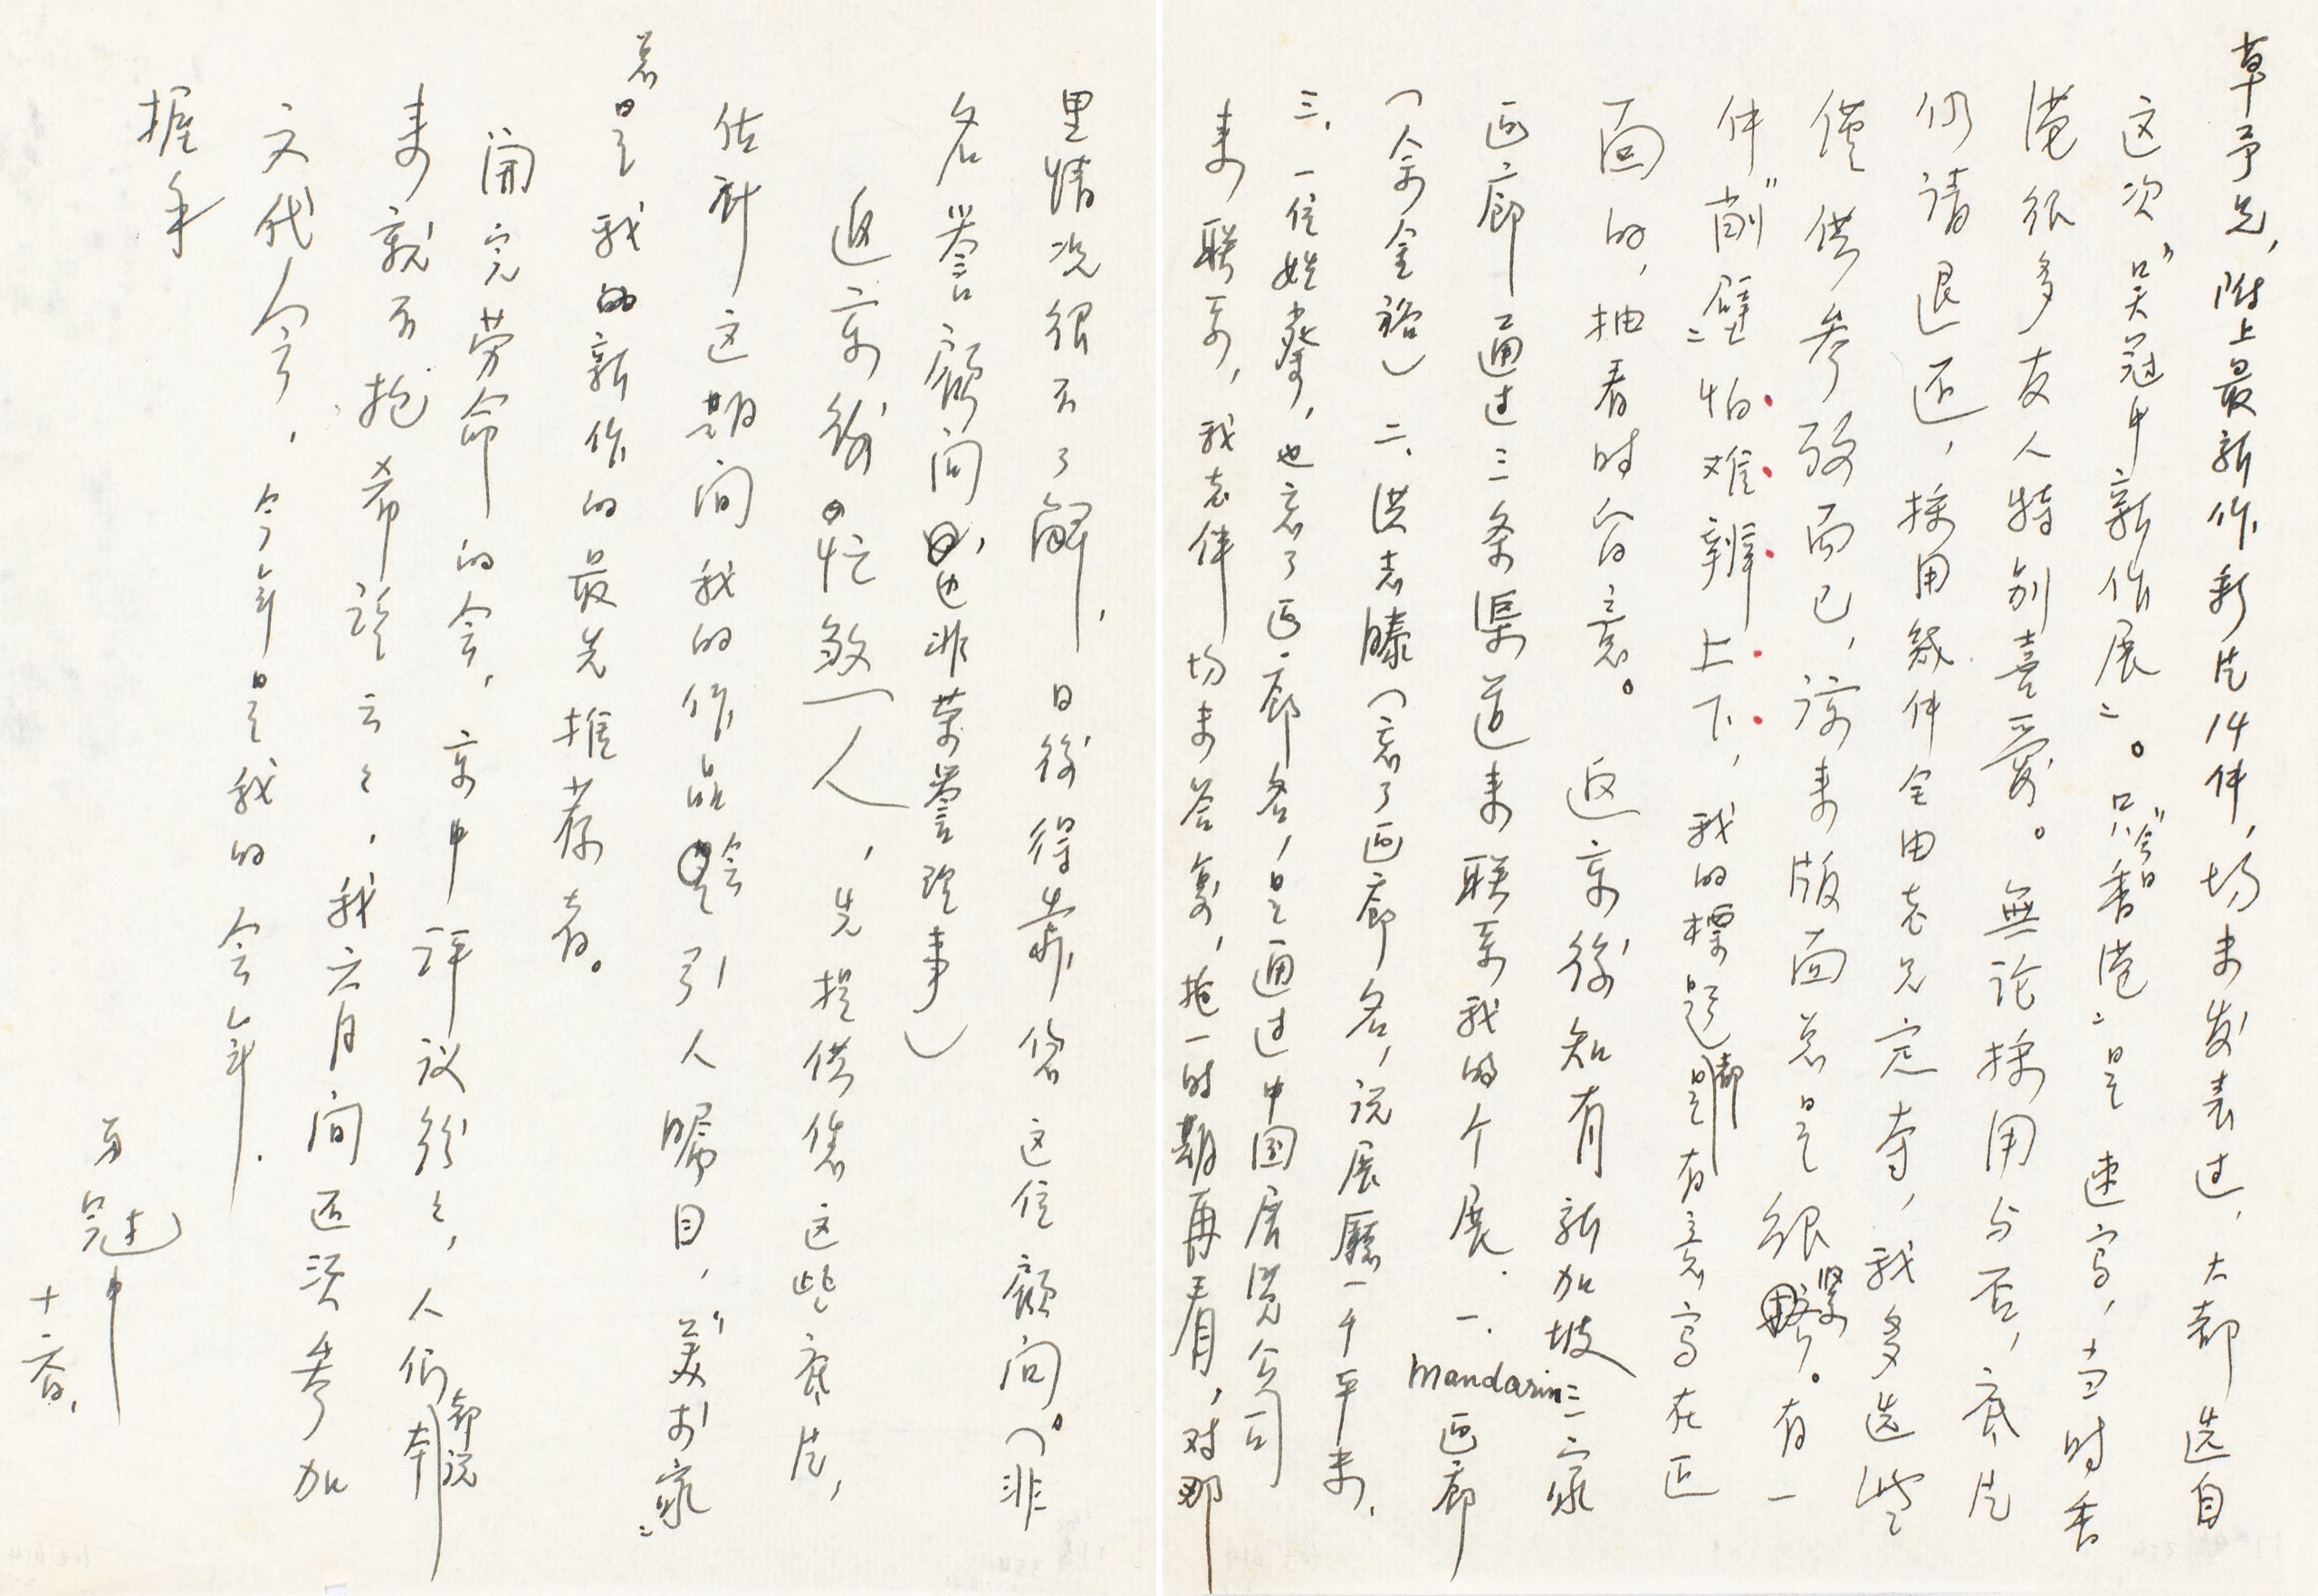 草予兄,附上最新作新片14件,均未发表过,大都选自
这次"吴冠中新作展"。只"今日香港"是速写,当时香
港很多友人特别喜爱。無论採用与否,底片
仍请退还,採用幾件全由老兄定夺,我多选些
僅供参攷而已,諒来版面总是很紧。有一
件"削壁"怕难辨上下,我的標題都是有意写在正
面的,抽看时留意。返京後知有新加坡三家
画廊通过三条渠道来联系我的个展.一.Mandarin画廊
(余金裕)二.洪志腾(忘了画廊名,说展廳一千平米.
三.一位姓蔡,也忘了画廊名,是通过中国展览公司
来联系,我老伴均未答复,拖一时期再看,对那
里情况很不了解,日後得靠您这位顧问。(非
名誉顧问,也非荣誉理事)
返京後忙煞一人,先提供您这些底片,
估計这期间我的作品会引人矚目,"美术家"
总是我的新作的最先推荐者。
開完劳命的会,京中评议纷々,人们都说本
来就不抱希望云々,我六月间还须参加
文代会,今年是我的会年.
握手
弟冠中